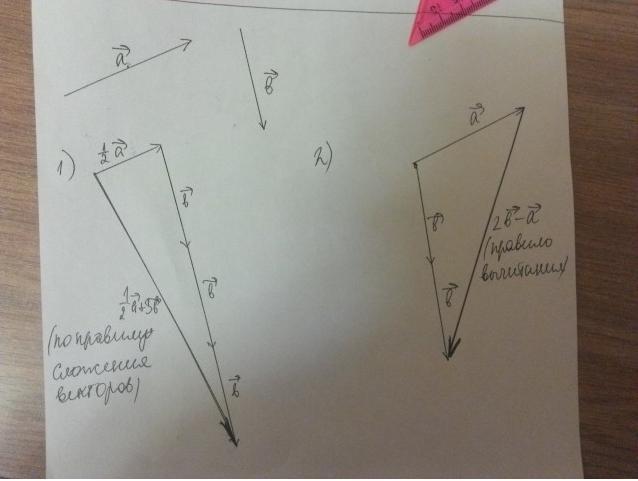 a⃗
b⃗
1)
½a⃗
b⃗
b⃗
b⃗
½a⃗+3b⃗
(по правилу
сложения
векторов)
2)
a⃗
b⃗
b⃗
2b⃗-a⃗
(правило
вычитания)